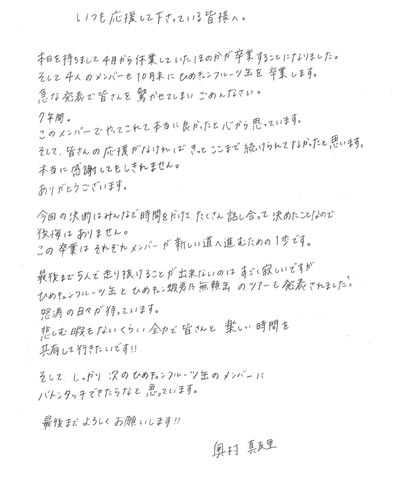 いつも応援して下さっている皆様へ。
本日を持ちまして4月から休業していたほのかが卒業することになりました。
そして4人のメンバーも10月末にひめキュンフルーツ缶を卒業します。
急な発表で皆さんを驚かせてしまいごめんなさい。
7年間。
このメンバーでやってこれて本当に良かったと心から思っています。
そして、皆さんの応援がなければきっとここまで続けられてなかったと思います。
本当に感謝してもしきれません。
ありがとうございます。
今回の決断はみんなで時間をかけてたくさん話し合って決めたことなので
後悔はありません。
この卒業はそれぞれメンバーが新しい道へ進むための1歩です。
最後まで5人で走り抜けることが出来ないのはすごく寂しいですが
ひめキュンフルーツ缶とひめキュン親男乃無頼缶のツアーも発表されました。
怒涛の日々が待っています。
悲しむ暇もないくらい全力で皆さんと楽しい時間を
共有して行きたいです!!
そしてしっかり次のひめキュンフルーツ缶のメンバーに
バトンタッチできたらなと思っています。
最後までよろしくお願いします!!
奥村真友里